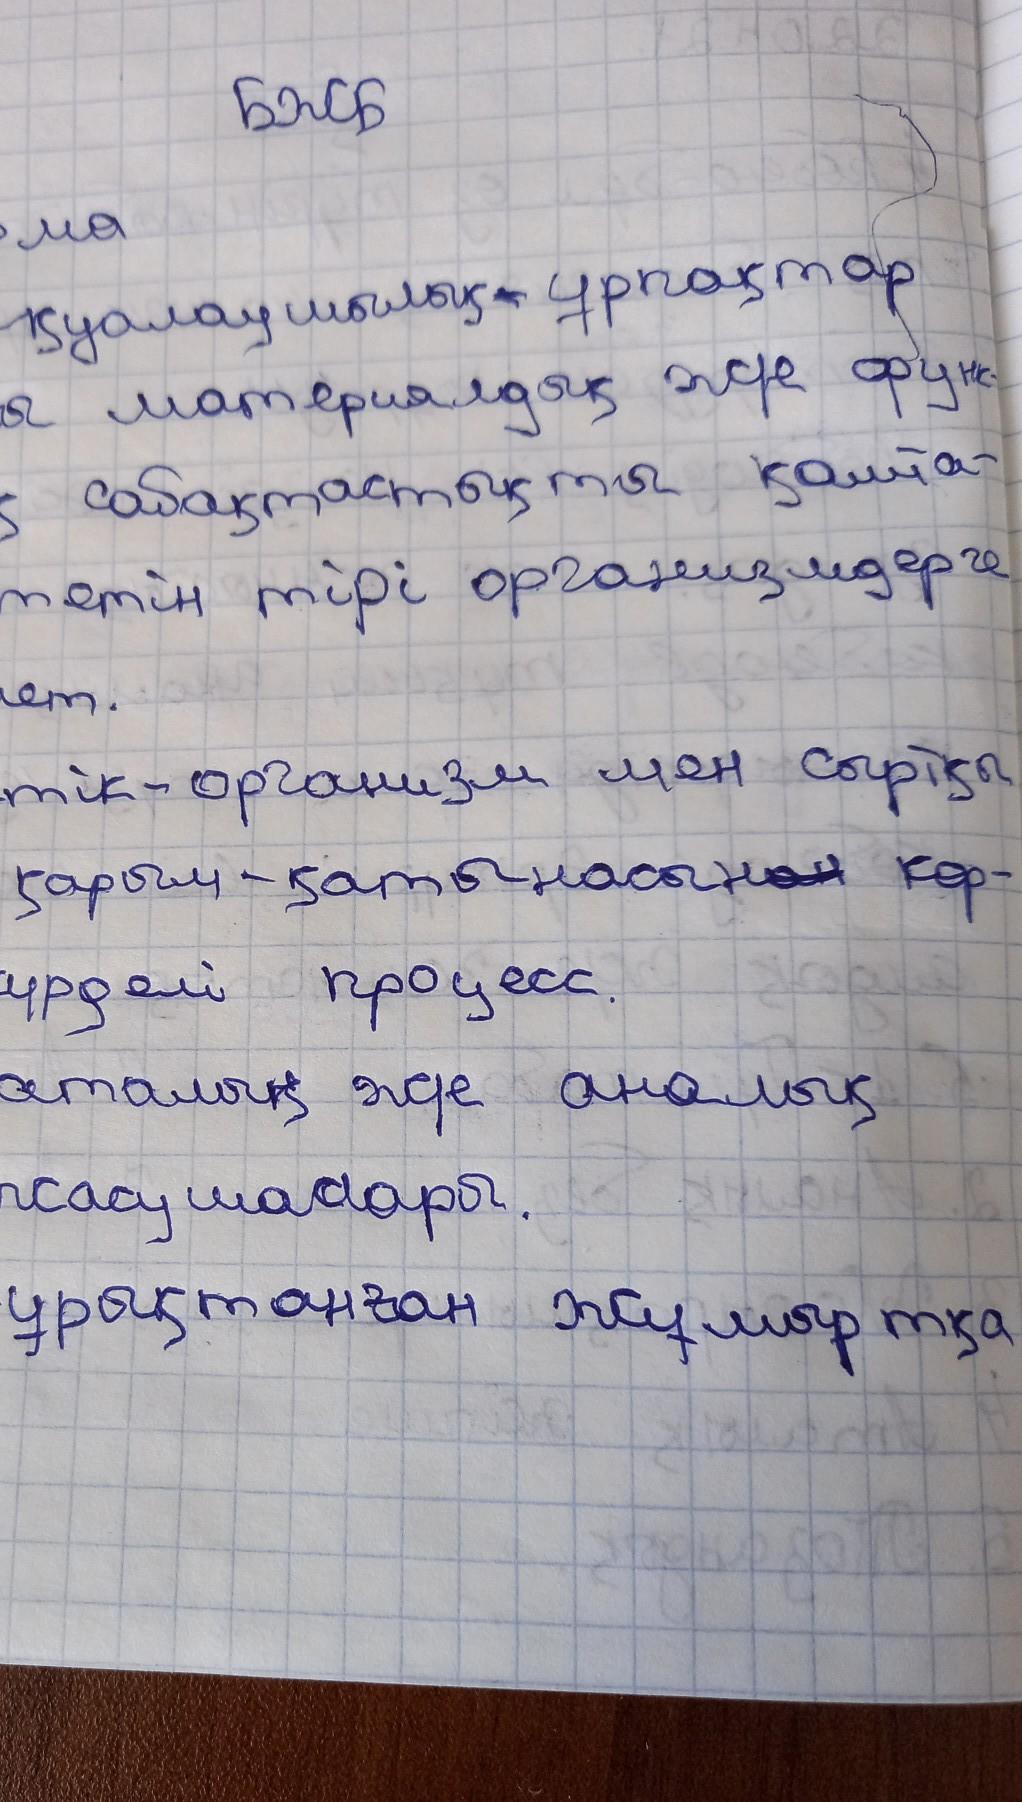 БЖБ
ома
қуалаушылық - ұрпақтар
ы материалдық және функ-
қ сабақтастықты қамта-
тетін тірі организмдерге
иет.
тік - организм мен сыртқы
қарым - қатынасынан көр-
үрделі процесс.
аталық және аналық
жасасушалары.
ұрықтанған жұмыртқа